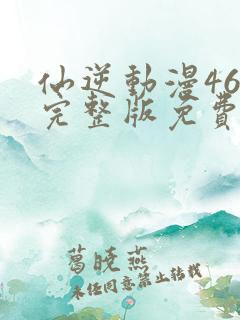 仙逆動漫46
完整版免費
葛晓燕
未经同意禁止转载